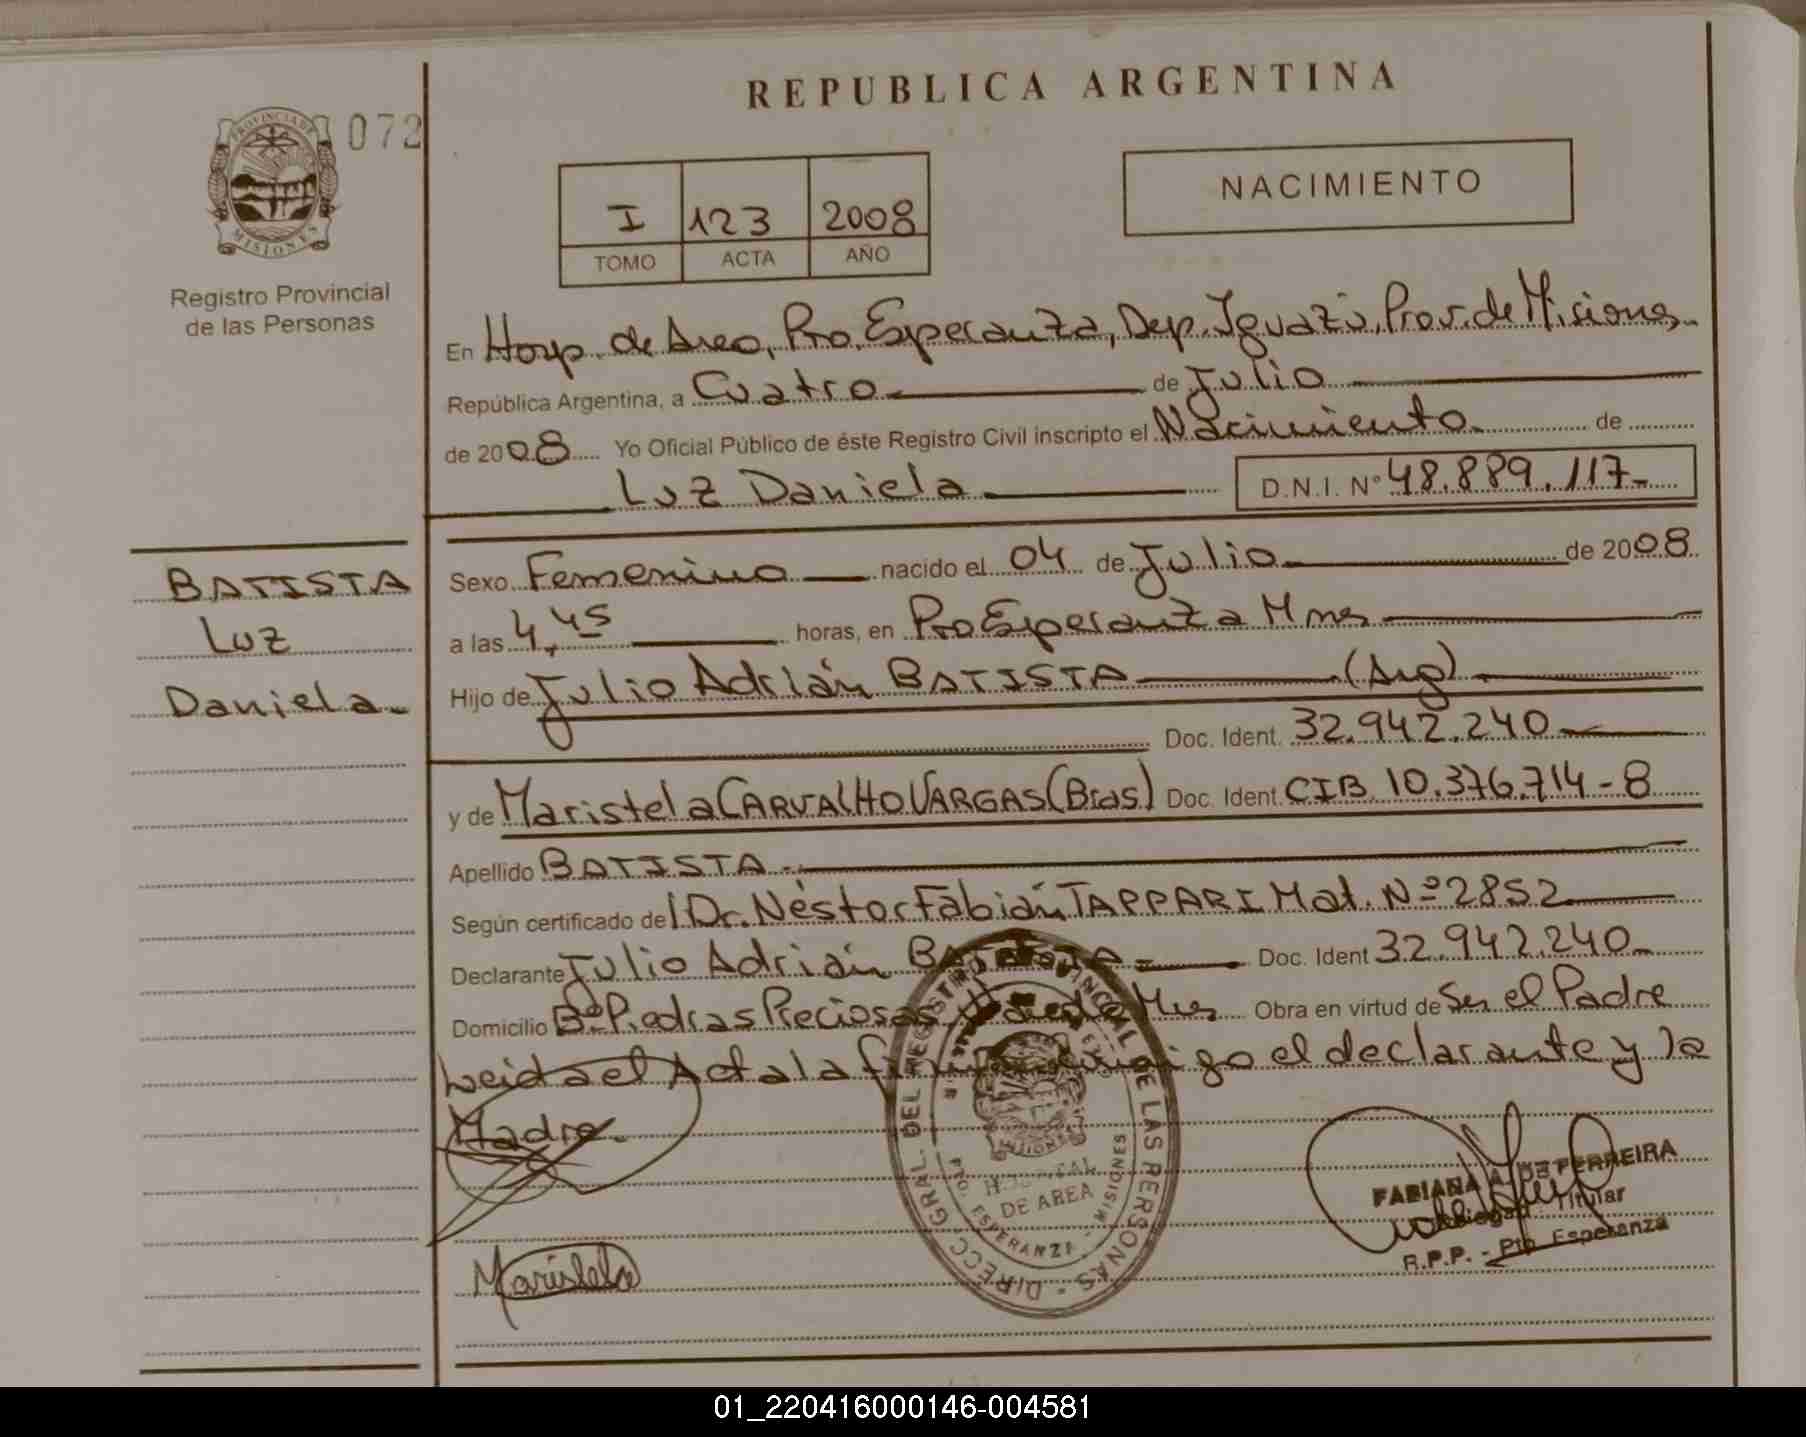 REPUBLICA ARGENTINA
PROVINCIA DE
MISIONES
072
Registro Provincial
de las Personas
I 123 2008
TOMO ACTA AÑO
NACIMIENTO
En Hosp. de Area, Pto. Esperanza, Dep. Iguazú, Prov. de Misiones
República Argentina, a Cuatro de Julio
de 2008 Yo Oficial Público de éste Registro Civil inscripto el Nacimiento de
Luz Daniela D.N.I. N° 48.889.117-
BATISTA
Luz
Daniela
Sexo Femenino nacido el 04 de Julio de 2008
a las 4,45 horas, en Pto Esperanza Mnes
Hijo de Julio Adrián BATISTA (Arg)
Doc. Ident. 32.942.240
y de Maristela CARVALHO VARGAS (Bras) Doc. Ident. CIB 10.376.714-8
Apellido BATISTA
Según certificado del Dr. Néstor Fabián TAPPARI Mat. Nº 2852
Declarante Julio Adrián BATISTA Doc. Ident 32.942.240
Domicilio Bº Piedras Preciosas Mnes Obra en virtud de Ser el Padre
Leida el Acta la conmigo el declarante y la
Madre
Maristela
DIRECC. GRAL. DEL REGISTRO PROVINCIAL DE LAS PERSONAS
HOSPITAL
DE AREA
PTO. ESPERANZA - MISIONES
FABIANA A. DE FERREIRA
Titular
R.P.P. - Pto Esperanza
01_220416000146-004581